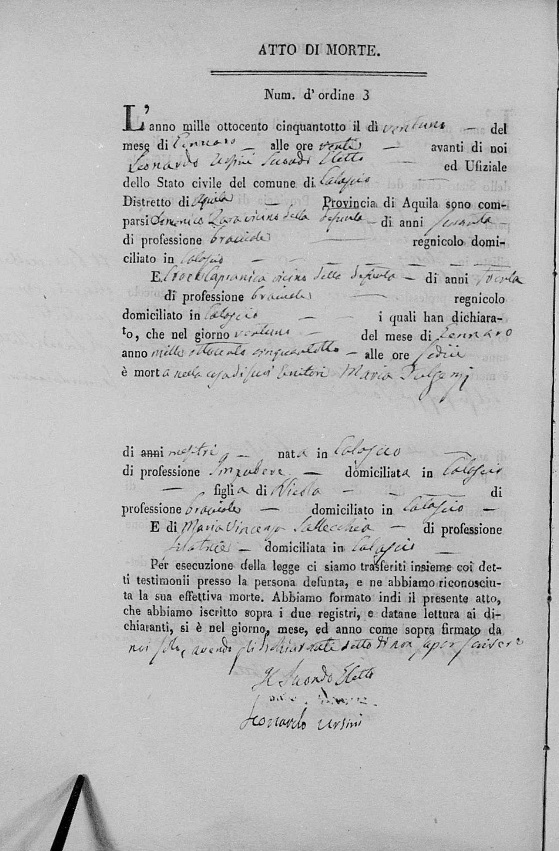 ATTO DI MORTE.
Num. d'ordine 3
L'anno mille ottocento cinquantotto il dì ventuno — del
mese di Gennaro — alle ore venti — avanti di noi
Leonardo Ursini Secondo Eletto — ed Ufiziale
dello Stato civile del comune di Calascio —
Distretto di Aquila — Provincia di Aquila sono com-
parsi Domenico vicino della defunta — di anni sessanta
di professione bracciale — regnicolo domi-
ciliato in Calascio —
E Croce Capranica vicino della defunta — di anni
di professione bracciale — regnicolo
domiciliato in Calascio — i quali han dichiara-
to, che nel giorno ventuno — del mese di Gennaro
anno mille ottocento cinquantotto — alle ore sedici
è morta nella casa di suoi Genitori Maria Fulgenzi
di anni — nata in Calascio —
di professione Impubere — domiciliata in Calascio
— figlia di Nicola — di
professione bracciale — domiciliato in Calascio —
E di Maria Vincenza — di professione
filatrice — domiciliata in Calascio —
Per esecuzione della legge ci siamo trasferiti insieme coi det-
ti testimonii presso la persona defunta, e ne abbiamo riconosciu-
ta la sua effettiva morte. Abbiamo formato indi il presente atto,
che abbiamo iscritto sopra i due registri, e datane lettura ai di-
chiaranti, si è nel giorno, mese, ed anno come sopra firmato da
noi soli, avendo gli dichiaranti detto di non saper scrivere
Il Secondo Eletto
Leonardo Ursini